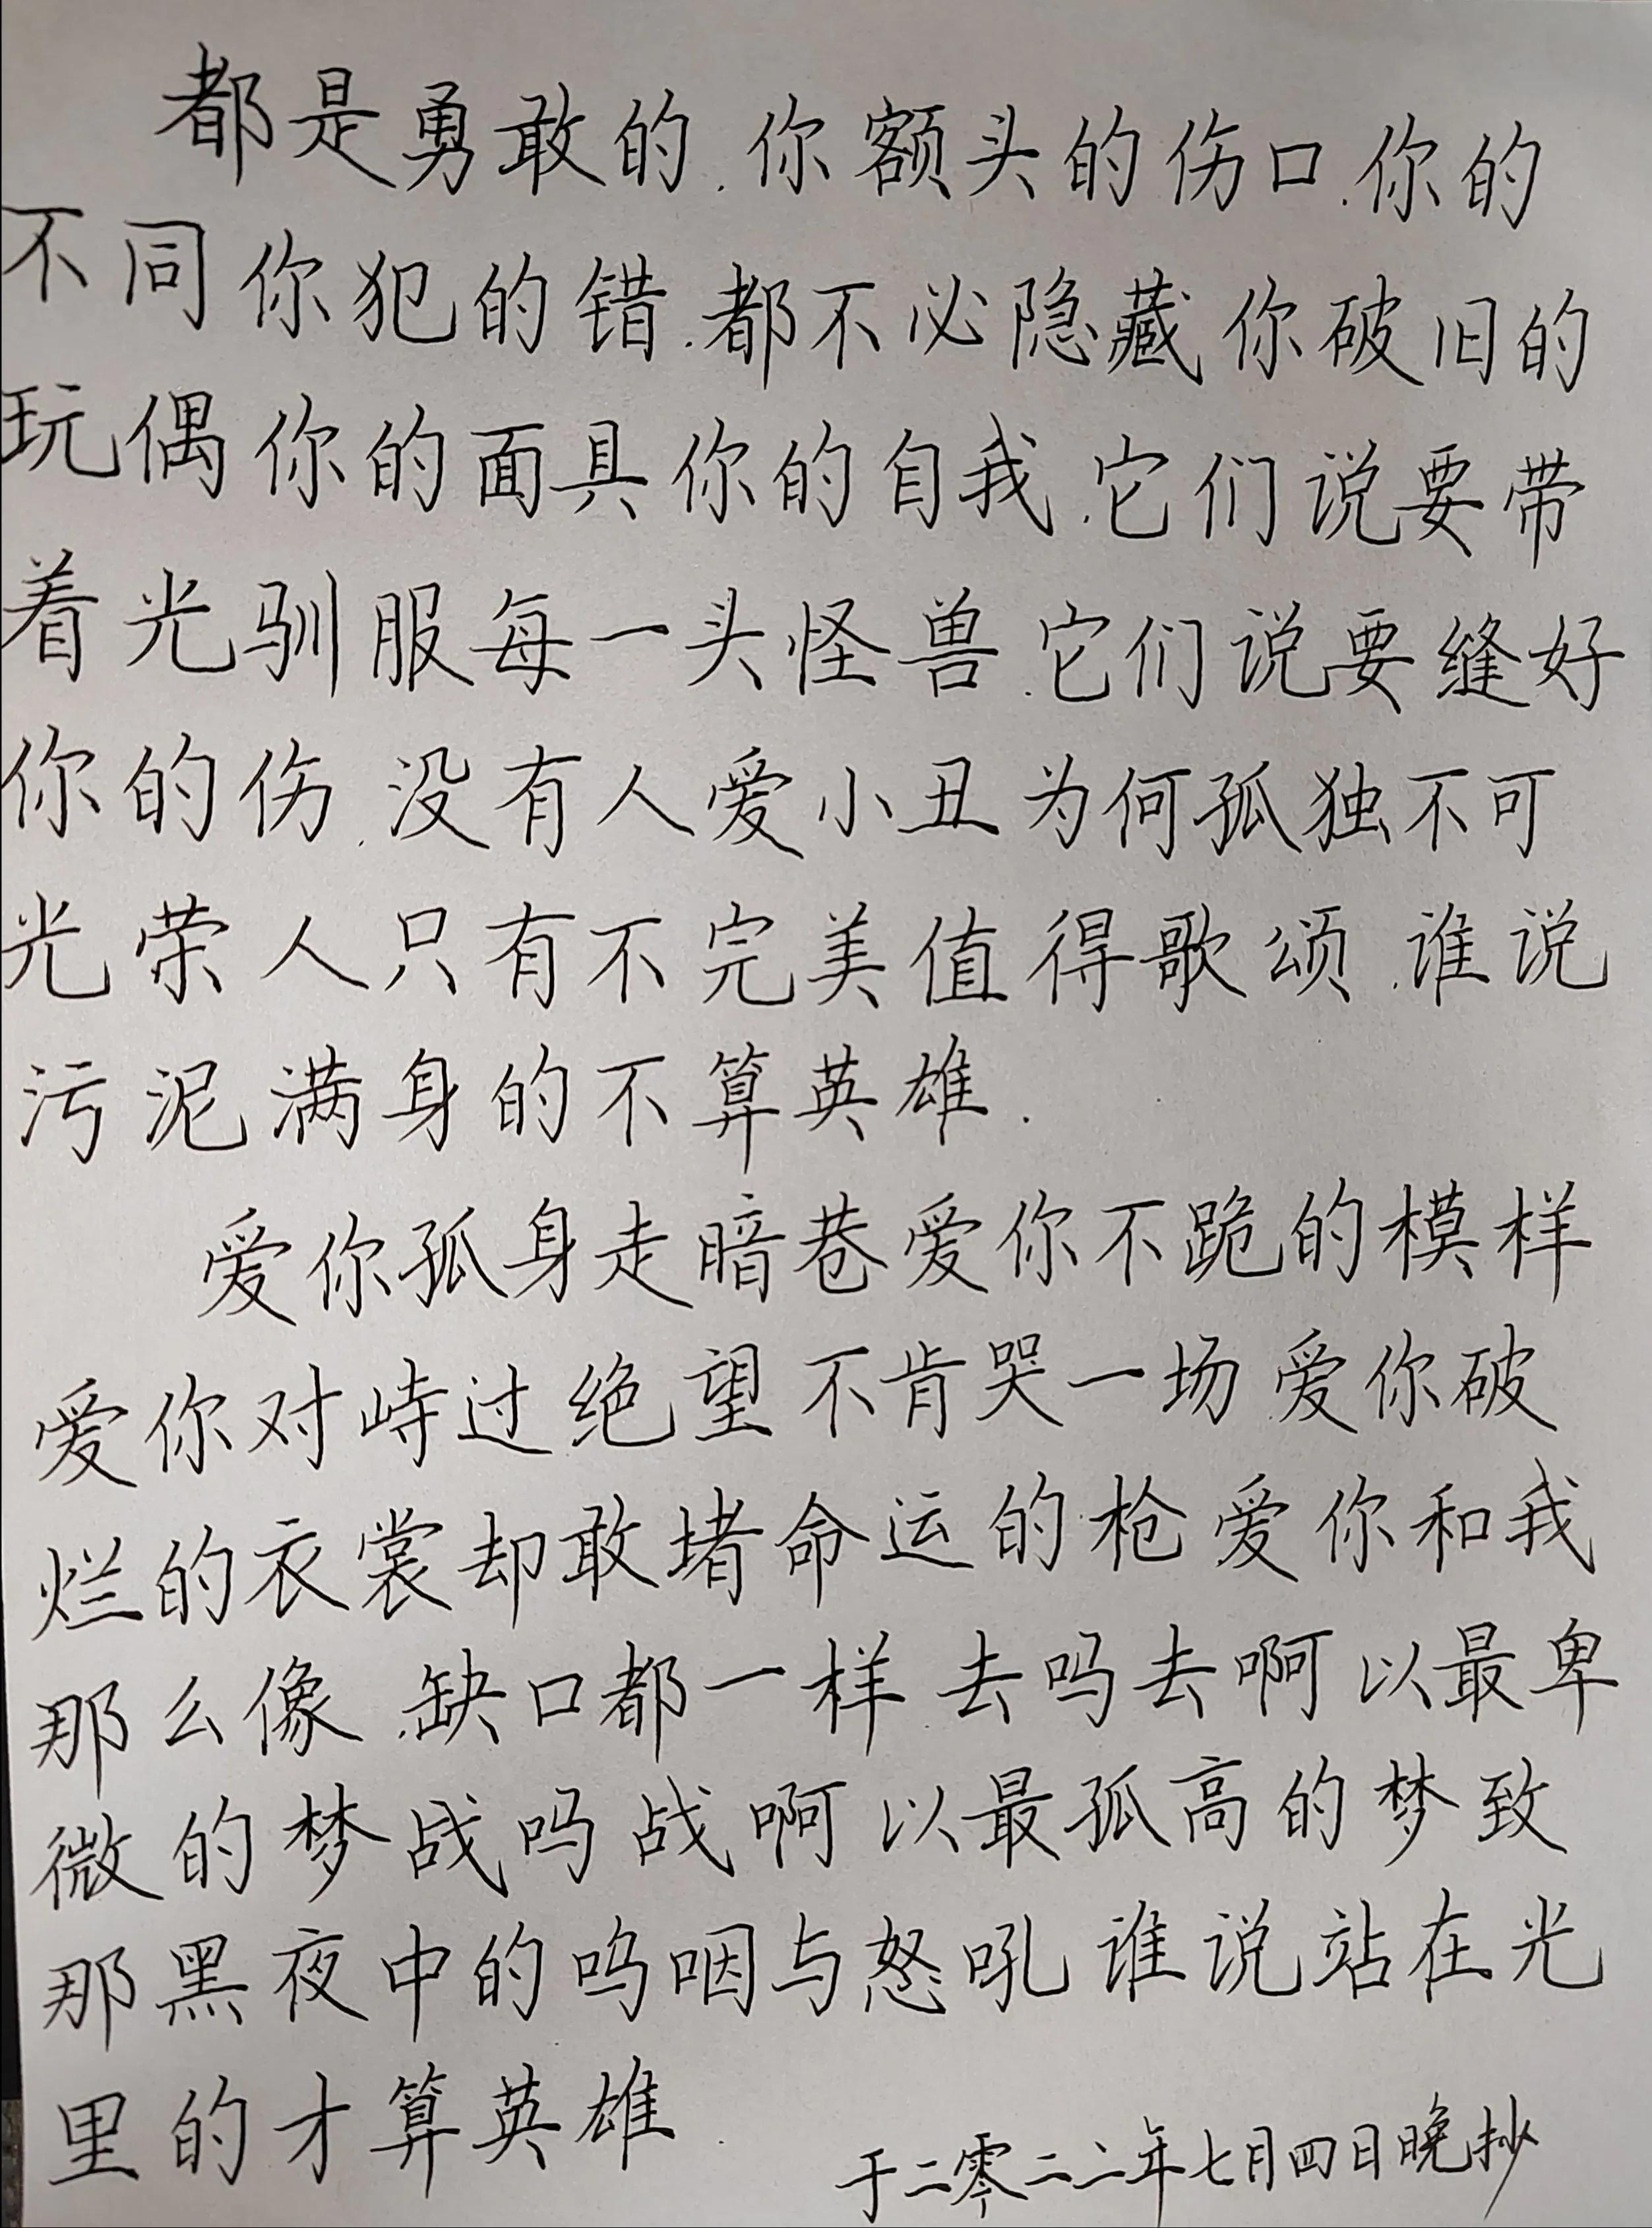 都是勇敢的.你额头的伤口.你的
不同你犯的错.都不必隐藏你破旧的
玩偶你的面具你的自我.它们说要带
着光驯服每一头怪兽.它们说要缝好
你的伤.没有人爱小丑为何孤独不可
光荣人只有不完美值得歌颂.谁说
污泥满身的不算英雄.
爱你孤身走暗巷爱你不跪的模样
爱你对峙过绝望不肯哭一场爱你破
烂的衣裳却敢堵命运的枪爱你和我
那么像.缺口都一样去吗去啊以最卑
微的梦战吗战啊以最孤高的梦致
那黑夜中的呜咽与怒吼谁说站在光
里的才算英雄.
于二零二二年七月四日晚抄